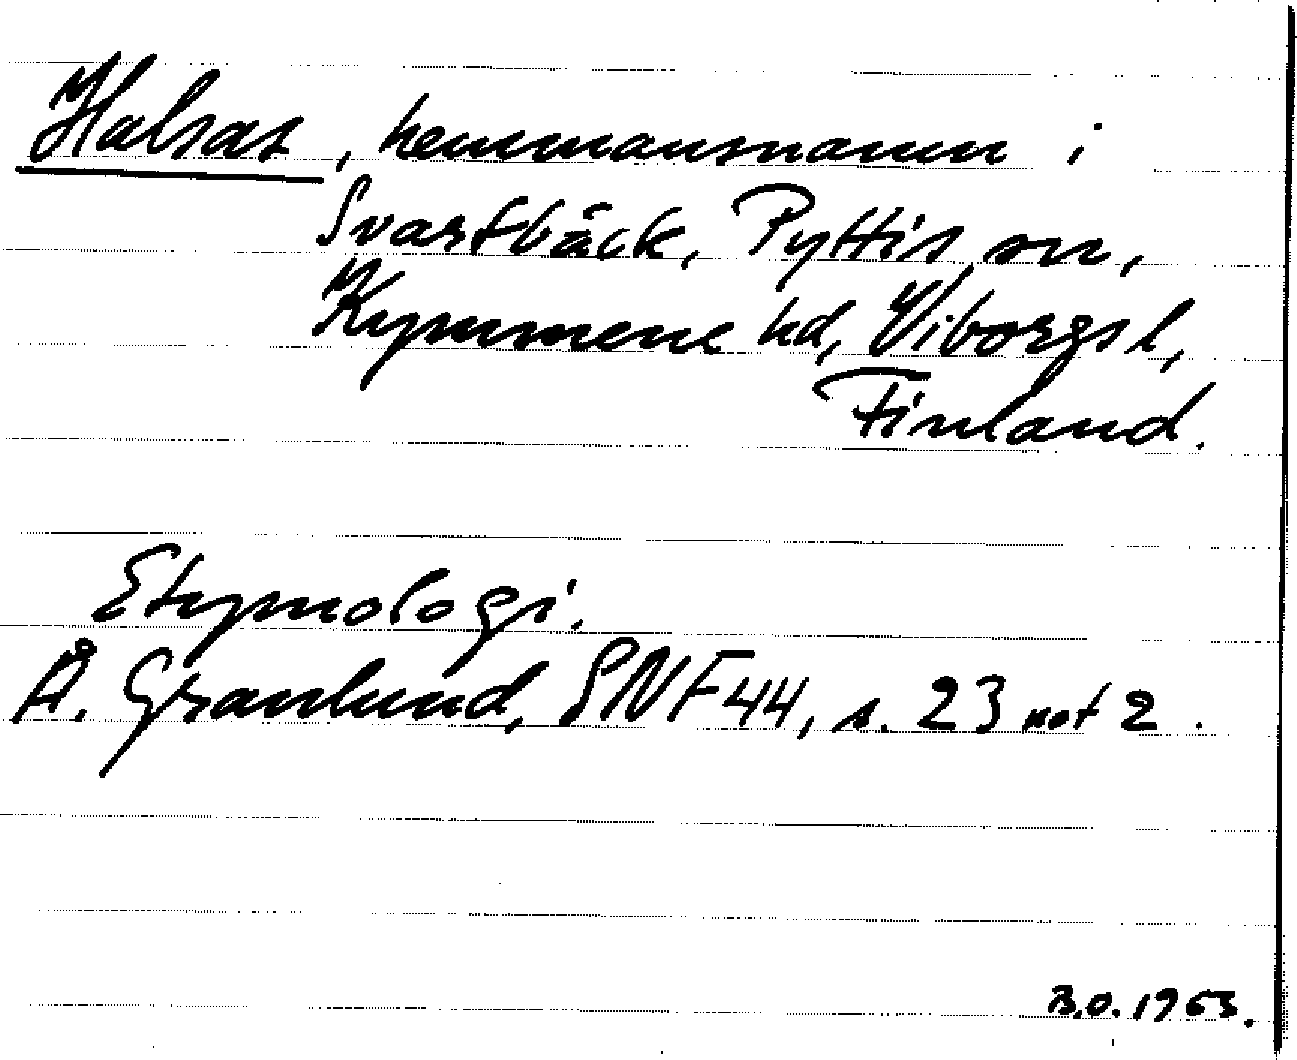 Halsas, hemmansnamn i
Svartbäck, Pyttis sn,
Kymmene hd, Viborgs l,
Finland.
Etymologi.
Å. Granlund, SNF 44, s. 23 not 2.
B.O. 1963.